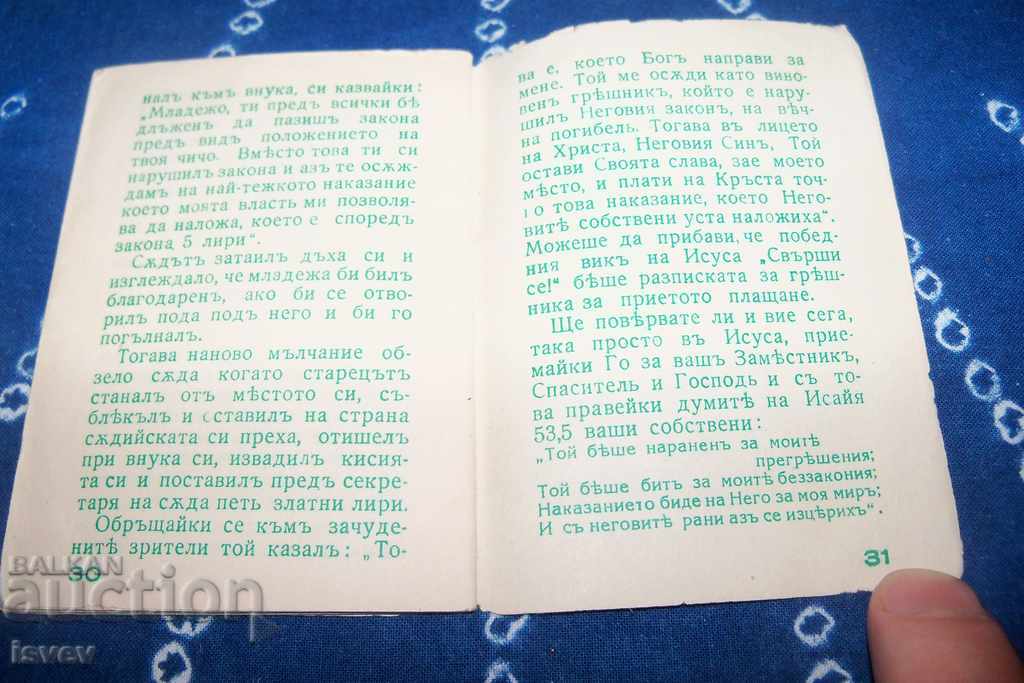 налъ къмъ внука, си казвайки:
„Младежо, ти предъ всички бѣ
длъженъ да пазишъ закона
предъ видъ положението на
твоя чичо. Вмѣсто това ти си
нарушилъ закона и азъ те осѫж-
дамъ на най-тежкото наказание
което моята власть ми позволя-
ва да наложа, което е според
закона 5 лири“.
Сѫдътъ затаилъ дъха си и
изглеждало, че младежа би билъ
благодаренъ, ако би се отво-
рилъ пода подъ него и би го
погълналъ.
Тогава наново мълчание об-
зело сѫда когато старецътъ
станалъ отъ мѣстото си, съ-
блѣкълъ и оставилъ на страна
сѫдийската си преха, отишелъ
при внука си, извадилъ кисия-
та си и поставилъ предъ секре-
таря на сѫда петь златни лири.
Обръщайки се къмъ зачуде-
нитѣ зрители той казалъ: „То-
30
ва е, което Богъ направи за
мене. Той ме осѫди като вино-
венъ грѣшникъ, който е нару-
шилъ Неговия законъ, на вѣч-
на погибель. Тогава въ лицето
на Христа, Неговия Синъ, Той
остави Своята слава, зае моето
мѣсто, и плати на Кръста точ-
но това наказание, което Него-
витѣ собствени уста наложиха“.
Можеше да прибави, че побед-
ния викъ на Исуса „Свърши
се!“ бѣше разписката за грѣш-
ника за приетото плащане.
Ще повѣрвате ли и вие сега,
така просто въ Исуса, прие-
майки Го за вашъ Замѣстникъ,
Спаситель и Господь и съ то-
ва правейки думитѣ на Исайя
53,5 ваши собствени:
„Той бѣше нараненъ за моитѣ
прегрѣшения;
Той бѣше битъ за моитѣ беззакония;
Наказанието биде на Него за моя миръ;
И съ неговитѣ рани азъ се изцѣрихъ“.
31
BALKAN
auction
isvev